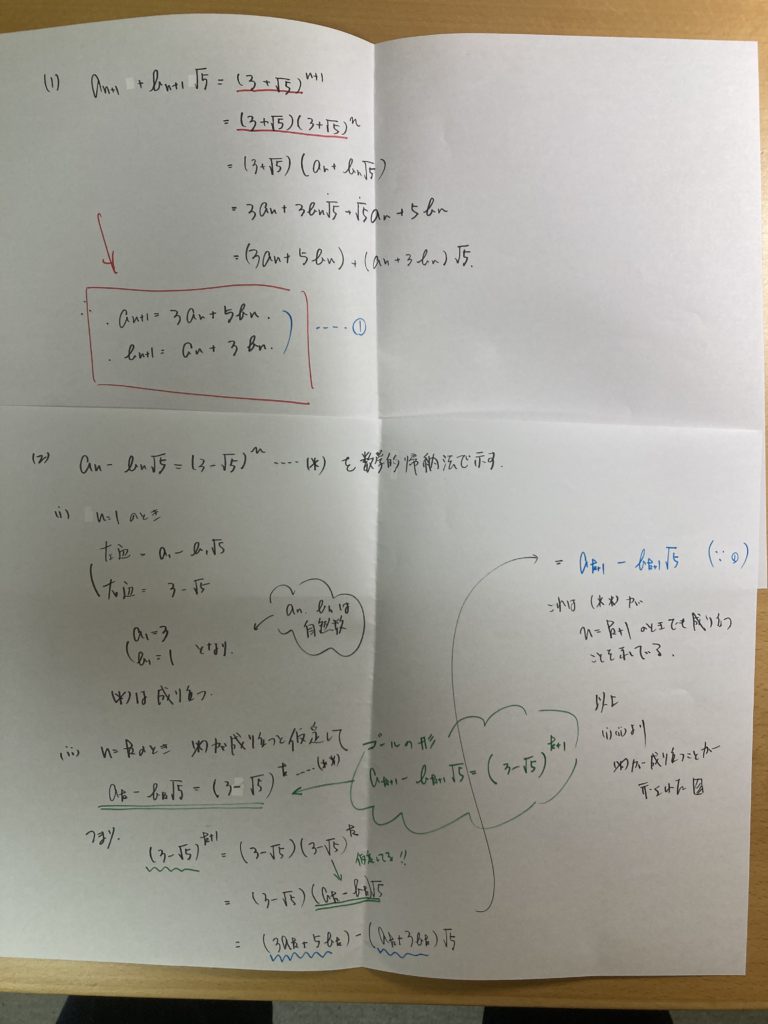 (1) an+1 + bn+1 √5 = (3+√5)^n+1
= (3+√5)(3+√5)^n
= (3+√5)(an + bn√5)
= 3an + 3bn√5 + √5an + 5bn
= (3an + 5bn) + (an + 3bn)√5.
∴ . an+1 = 3an + 5bn.
. bn+1 = an + 3bn.
---- ①
(2) an - bn√5 = (3-√5)^n ---- (*) を数学的帰納法で示す.
(i) n=1 のとき
左辺 = a1 - b1√5
右辺 = 3 - √5
an, bn は
自然数
a1 = 3
b1 = 1 となり.
(*)は成り立つ.
(ii) n=kのとき (*)が成り立つと仮定して
ak - bk√5 = (3-√5)^k ---- (**)
ゴールの形
ak+1 - bk+1√5 = (3-√5)^k+1
つまり.
(3-√5)^k+1 = (3-√5)(3-√5)^k
仮定してる!!
= (3-√5)(ak - bk)√5
= (3ak + 5bk) - (ak + 3bk)√5
= ak+1 - bk+1√5 (∵①)
これは (**) が
n=k+1 のときでも成り立つ
ことを示している.
以上
(i)(ii)より
(*)が成り立つことが
示された